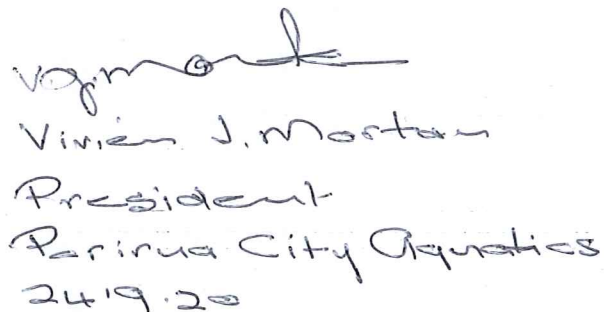 Vivien J. Mortan
President
Porirua City Aquatics
24.9.20